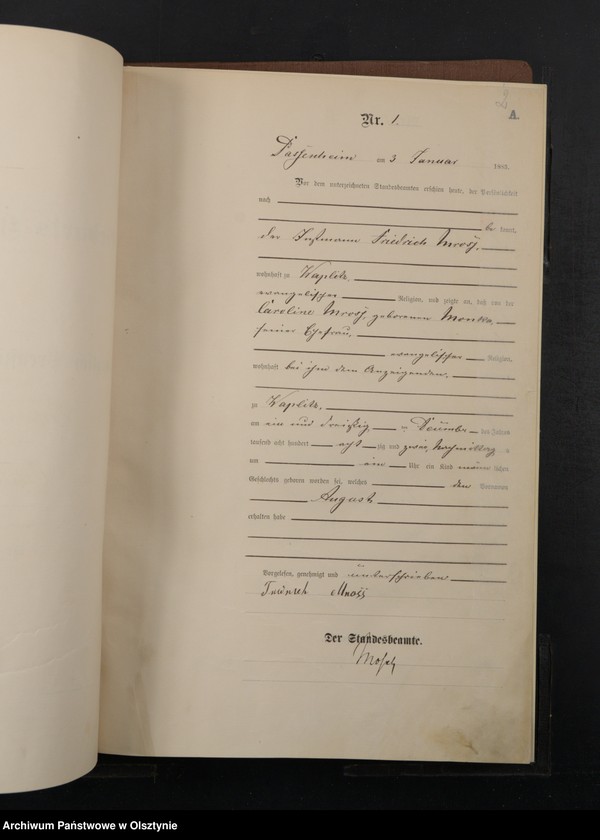 2
A.
Nr. 1
Passenheim am 3 Januar 1883.
Vor dem unterzeichneten Standesbeamten erschien heute, der Persönlichkeit
nach
be kannt,
der Friedrich Mross,
wohnhaft zu Waplitz,
evangelischer Religion, und zeigte an, daß von der
Caroline Mross, geborenen Monka,
seiner Ehefrau,
evangelischer Religion,
wohnhaft bei ihm dem Anzeigenden,
zu Waplitz,
am ein und dreißig ten Dezember des Jahres
tausend acht hundert acht zig und zwei, Nachmittag s
um ein Uhr ein Kind männ lichen
Geschlechts geboren worden sei, welches den Vornamen
August
erhalten habe
Vorgelesen, genehmigt und unterschrieben
Mross
Der Standesbeamte.
Archiwum Państwowe w Olsztynie